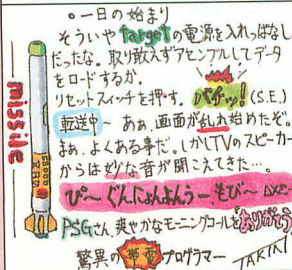 ○一日の始まり
そういやtargetの電源を入れっぱなし
だったな。取り敢えずアセンブルしてデータ
をロードするか。
リセットスイッチを押す。バチッ!(S.E.)
転送中〜 ああ、画面が乱れ始めたぞ。
まぁ、よくある事だ。しかしTVのスピーカー
からは妙な音が聞こえてきた…。
ぴ〜 ぐんにょんよんうー もび〜
PSGさん、爽やかなモーニングコールをありがとう
驚異の帯電プログラマー TAKIN
missile
X68000